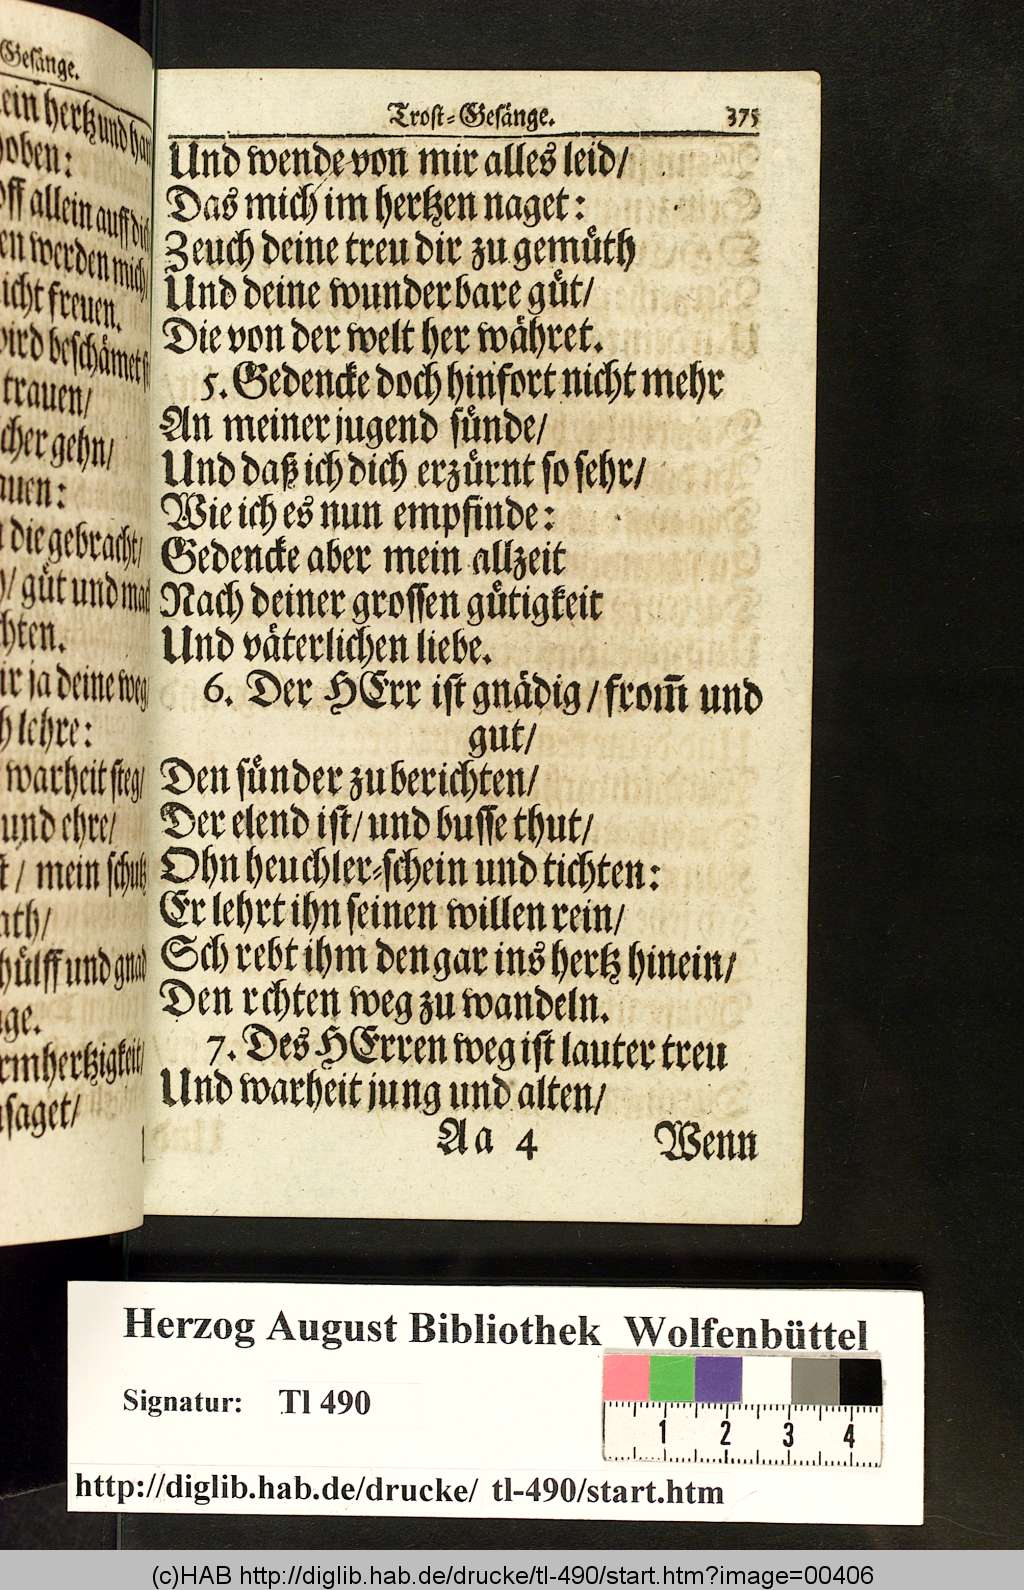 Gesänge.
ein hertz und han
oben:
off allein auff dich
en werden mich/
icht freuen.
ird beschämet
trauen/
cher gehn/
auen:
die gebracht/
/ güt und mach
hten.
ir ja deine weg
lehre:
warheit steg/
und ehre/
/ mein schutz
ath/
hülff und gnad
ge.
rmhertzigkeit/
saget/
Trost-Gesänge. 375
Und wende von mir alles leid/
Das mich im hertzen naget:
Zeuch deine treu dir zu gemüth
Und deine wunderbare güt/
Die von der welt her währet.
5. Gedencke doch hinfort nicht mehr
An meiner jugend sünde/
Und daß ich dich erzürnt so sehr/
Wie ich es nun empfinde:
Gedencke aber mein allzeit
Nach deiner grossen gütigkeit
Und väterlichen liebe.
6. Der HErr ist gnädig/ from̃ und
gut/
Den sünder zu berichten/
Der elend ist/ und busse thut/
Ohn heuchler-schein und tichten:
Er lehrt ihn seinen willen rein/
Sch rebt ihm den gar ins hertz hinein/
Den rchten weg zu wandeln.
7. Des HErren weg ist lauter treu
Und warheit jung und alten/
Aa 4 Wenn
Herzog August Bibliothek Wolfenbüttel
Signatur: Tl 490
1 2 3 4
http://diglib.hab.de/drucke/ tl-490/start.htm
(c)HAB http://diglib.hab.de/drucke/tl-490/start.htm?image=00406